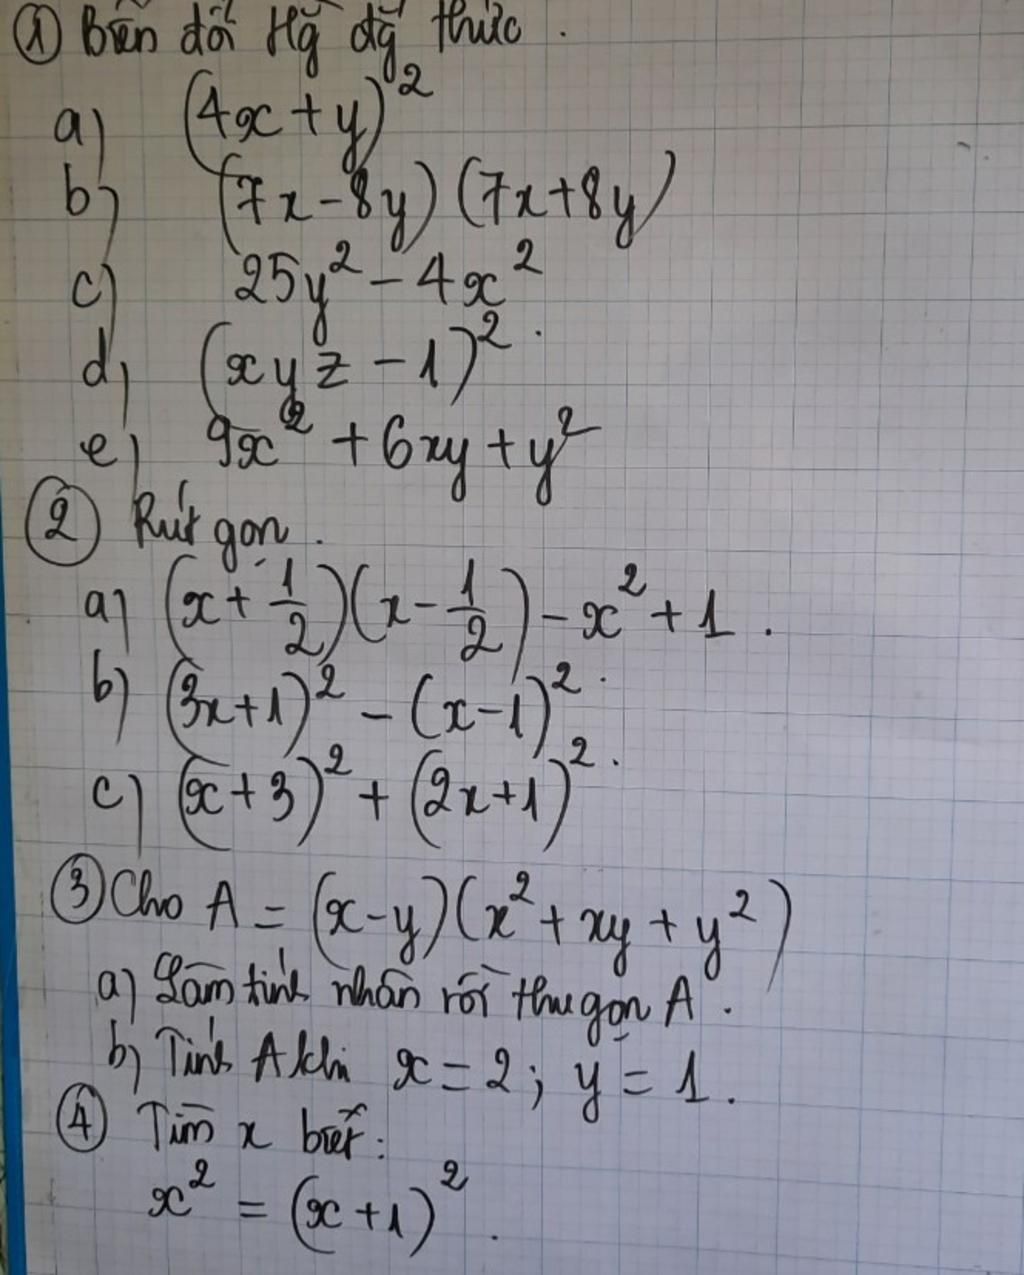 ① Biến đổi Hg̃ đg̃ thức.
a) (4x+y)²
b) (7x-8y)(7x+8y)
c) 25y² - 4x²
d) (xyz - 1)².
e) 9x² + 6xy + y²
② Rút gọn.
a) (x + 1/2)(x - 1/2) - x² + 1.
b) (3x+1)² - (x-1)².
c) (x+3)² + (2x+1)².
③ Cho A = (x-y)(x² + xy + y²)
a) Làm tính nhân rồi thu gọn A.
b) Tính A khi x = 2; y = 1.
④ Tìm x biết:
x² = (x+1)².